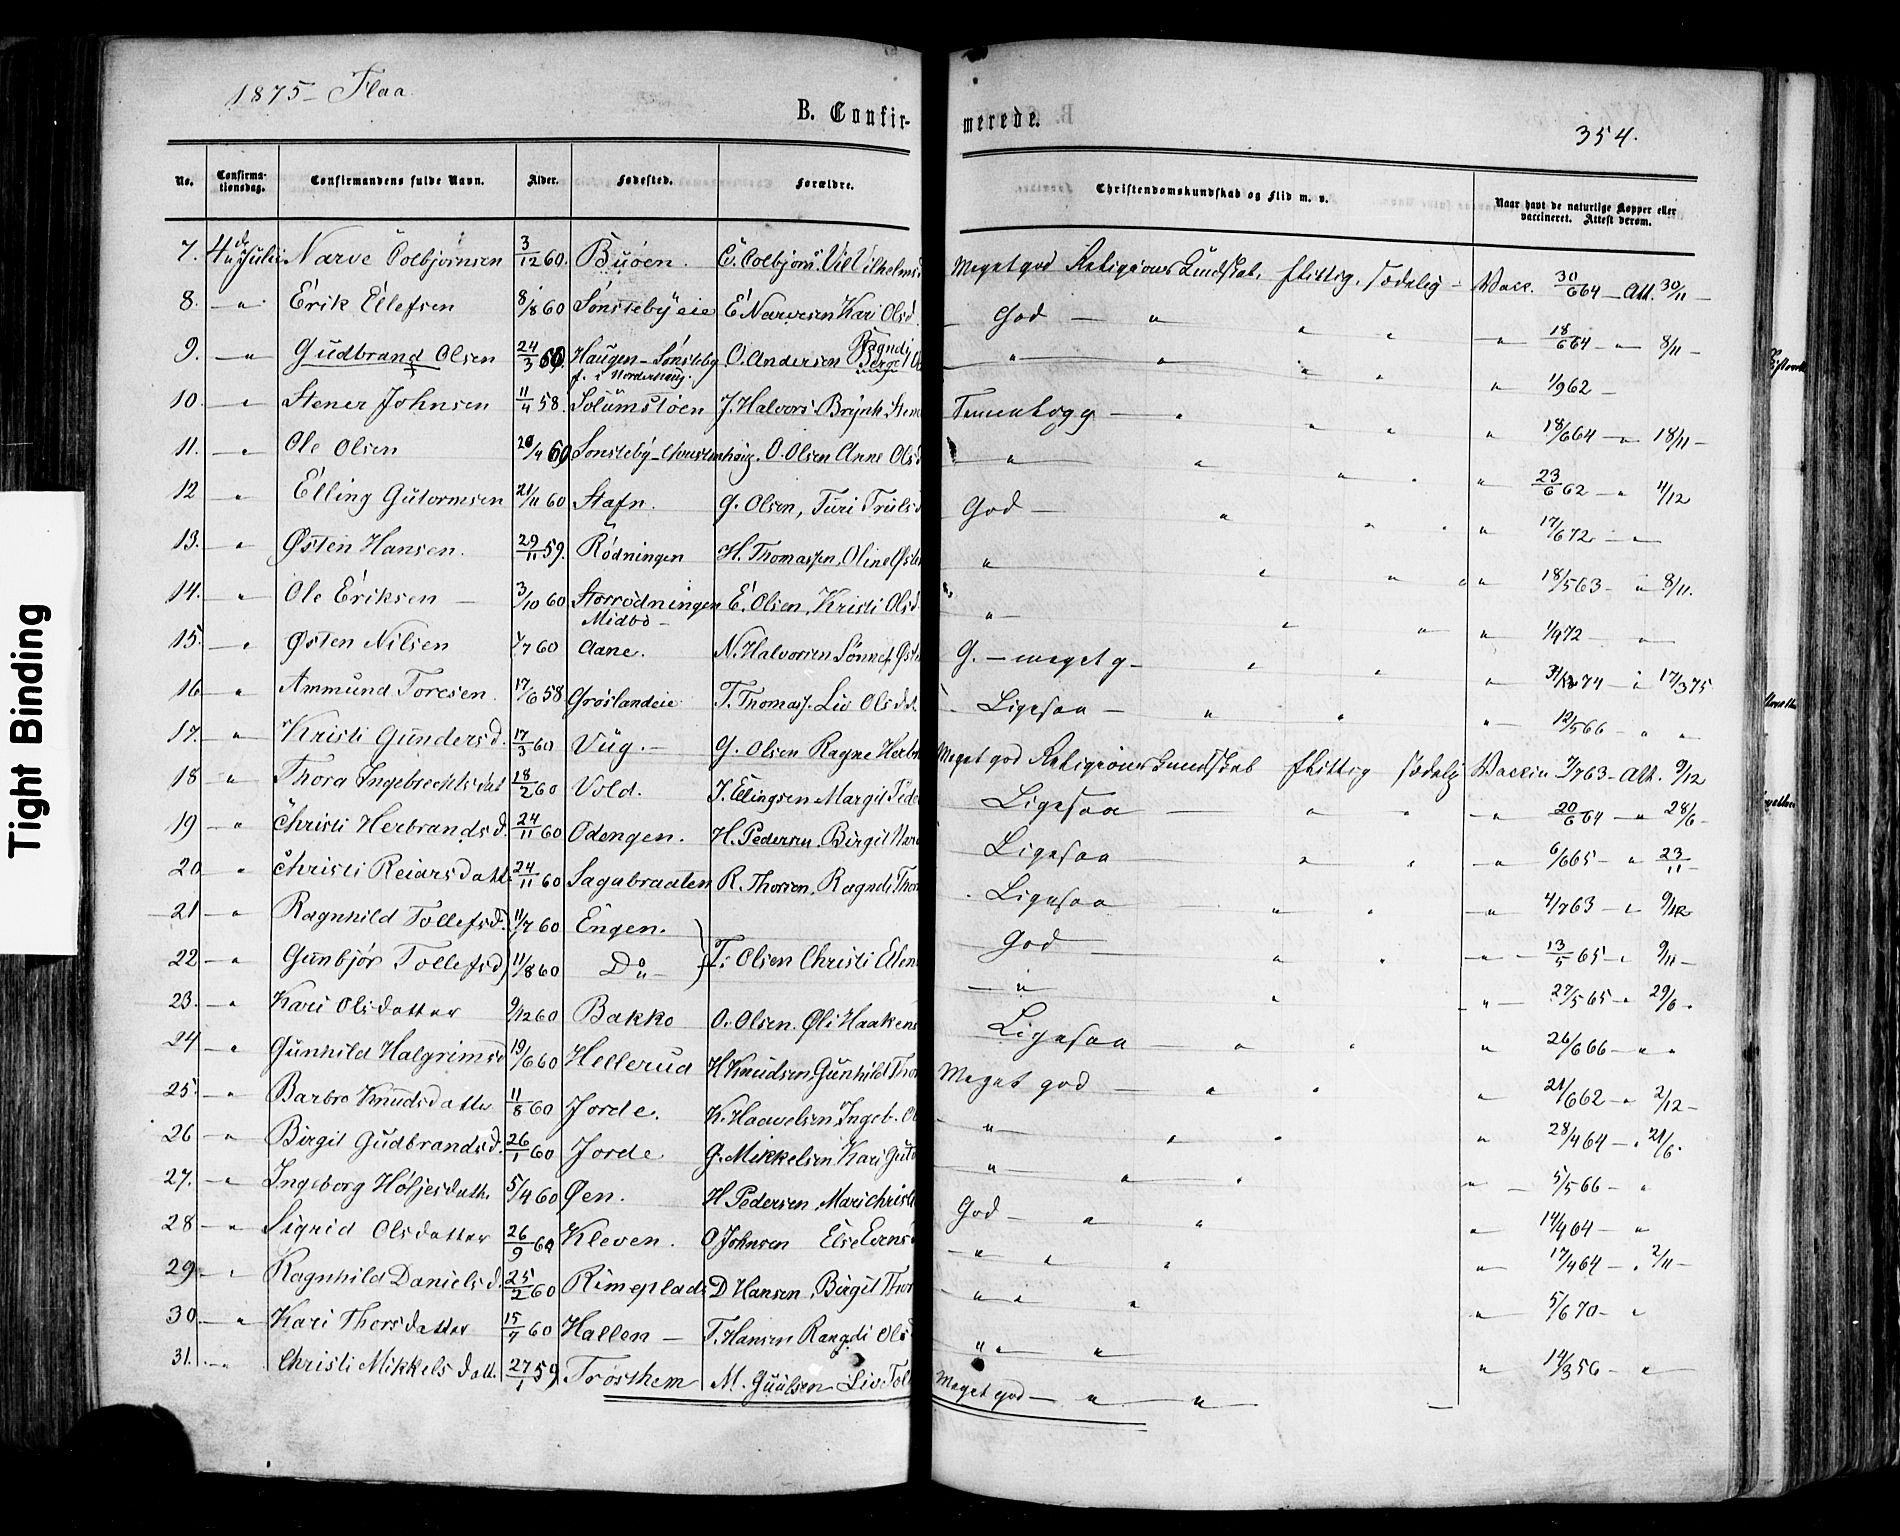 1875 - Flaa
B. Confir-
merede.
354.
No.
Confirma-tionsdag.
Confirmandens fulde Navn.
Alder.
Fødested.
Forældre.
Christendomskundskab og Flid m. v.
Naar havt de naturlige Kopper eller vaccineret. Attest derom.
7. 4de Julii Narve Colbjørnsen 3/12 60. Buøen. Meget god Religions Kundskab, flittig, sædelig - Vacc. 30/6 64 - Att. 30/11 -
8. - " Erik Ellefsen 8/8 60 Sønstebyeie E Narvesen Kari Olsd God - " " " - " 18/6 64 - " 8/11 -
9. - " Gudbrand Olsen 24/3 60 Haugen - Sønsteby f. i Norderhoug. O. Andersen " " " " " 1/9 62 -
10. - " Stener Johnsen 11/4 58 Solumstøen J. Halvors. - " " " " 18/6 64 - " 18/11 -
11. - " Ole Olsen 20/4 60 Sønsteby O. Olsen Anne Olsd " " " " " 23/6 62 - " 11/12
12 - " Elling Gutormsen 21/11 60 Stafn. G. Olsen, Turi Trulsd God - " " " " 17/6 72 - " -
13. - " Østen Hansen. 29/11 59. Rødningen H. Thomassen, Oline Østen " " " " " 18/5 63 - " 8/11.
14. - " Ole Eriksen - 3/10 60 Storrødningen Midbø - E. Olsen, Kristi Olsd " - " " " 1/9 72 - " -
15. - " Østen Nilsen 1/7 60 Aane. N. Halvorsen Sønnef. Østen G. - meget g - " " " 74 - " 17/3 75
16 - " Ammund Toresen. 17/6 58 Grøslandeie T. Thomass. Liv Olsdat Ligesaa - " " " 12/5 66 - " "
17. - " Kristi Gundersd. 17/3 60 Vüg. - G. Olsen Ragne Herbr Meget god Religions Kundskab flittig sædelig Vaccin 7/7 63 - Att. 9/12
18 - " Thora Ingebrechtsdat 18/2 60 Vold. I. Ellingsen Margit Peder Ligesaa - " " - " 20/6 64 - " 28/6 -
19 - " Christi Herbrandsd. 24/11 60 Odengen. H. Pedersen, Birgit Narv Ligesaa - " " - " 6/6 65 - " 23/11 -
20 - " Christi Reiarsdatt. 24/11 60 Sagabraaten R. Thorsen, Ragndi Thor Ligesaa - " " - " 4/7 63 - " 9/12
21 - " Ragnhild Tollefsd. 11/7 60 Engen. God - " " - " 13/5 65 - " 9/11 -
22 - " Gunbjør Tollefsd) 11/8 60 Do } T. Olsen Christi Ellen - " - " " - 27/5 65 - " 29/6.
23. - " Kari Olsdatter 9/12 60 Bakko O. Olsen. Øli Haakens Ligesaa - " " " 26/6 66 - " "
24 - " Gunhild Halgrimsd 19/6 60 Hellerud H Knudsen, Gunhild Thor Meget god - " " " 21/6 62 - " 2/12 -
25. - " Barbro Knudsdatter 11/8 60 Jorde. K. Haavelsen Ingeb. O - " - " " " 28/4 64 - " 21/6.
26 - " Birgit Gudbrandsd. 26/1 60 Jorde G. Mikkelsen Kari Guto " - " " " - 5/5 66 - "
27. - " Ingeborg Høljesdatt. 5/4 60 Øen. H Pedersen, Mari Christi God - " " " - 14/9 64 - "
28 - " Sigrid Olsdatter 26/9 60 Kleven. O Johnsen Else Evensd - " " " " - 17/4 64 - " 2/11 -
29 - " Ragnhild Danielsd. 25/2 60 Rimeplads D Hansen, Birgit Thor - " " " " - 5/6 70 - "
30 - " Kari Thorsdatter 15/7 60 Hallen - T. Hansen Rangdi Olsd " " " " - 14/3 56 - " -
31. - " Christi Mikkelsdatt. 27/1 59 Trøsthem M. Guulsen Liv Toll Meget god - " - " -
Tight Binding